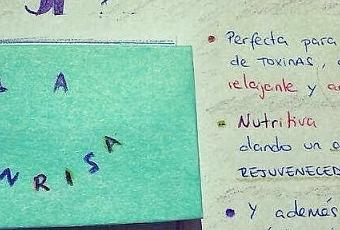 A
NRISA
• Perfecta para
de TOXINAS,
relajante y
- Nutritiva
dando un
REJUVENECED
• Y además